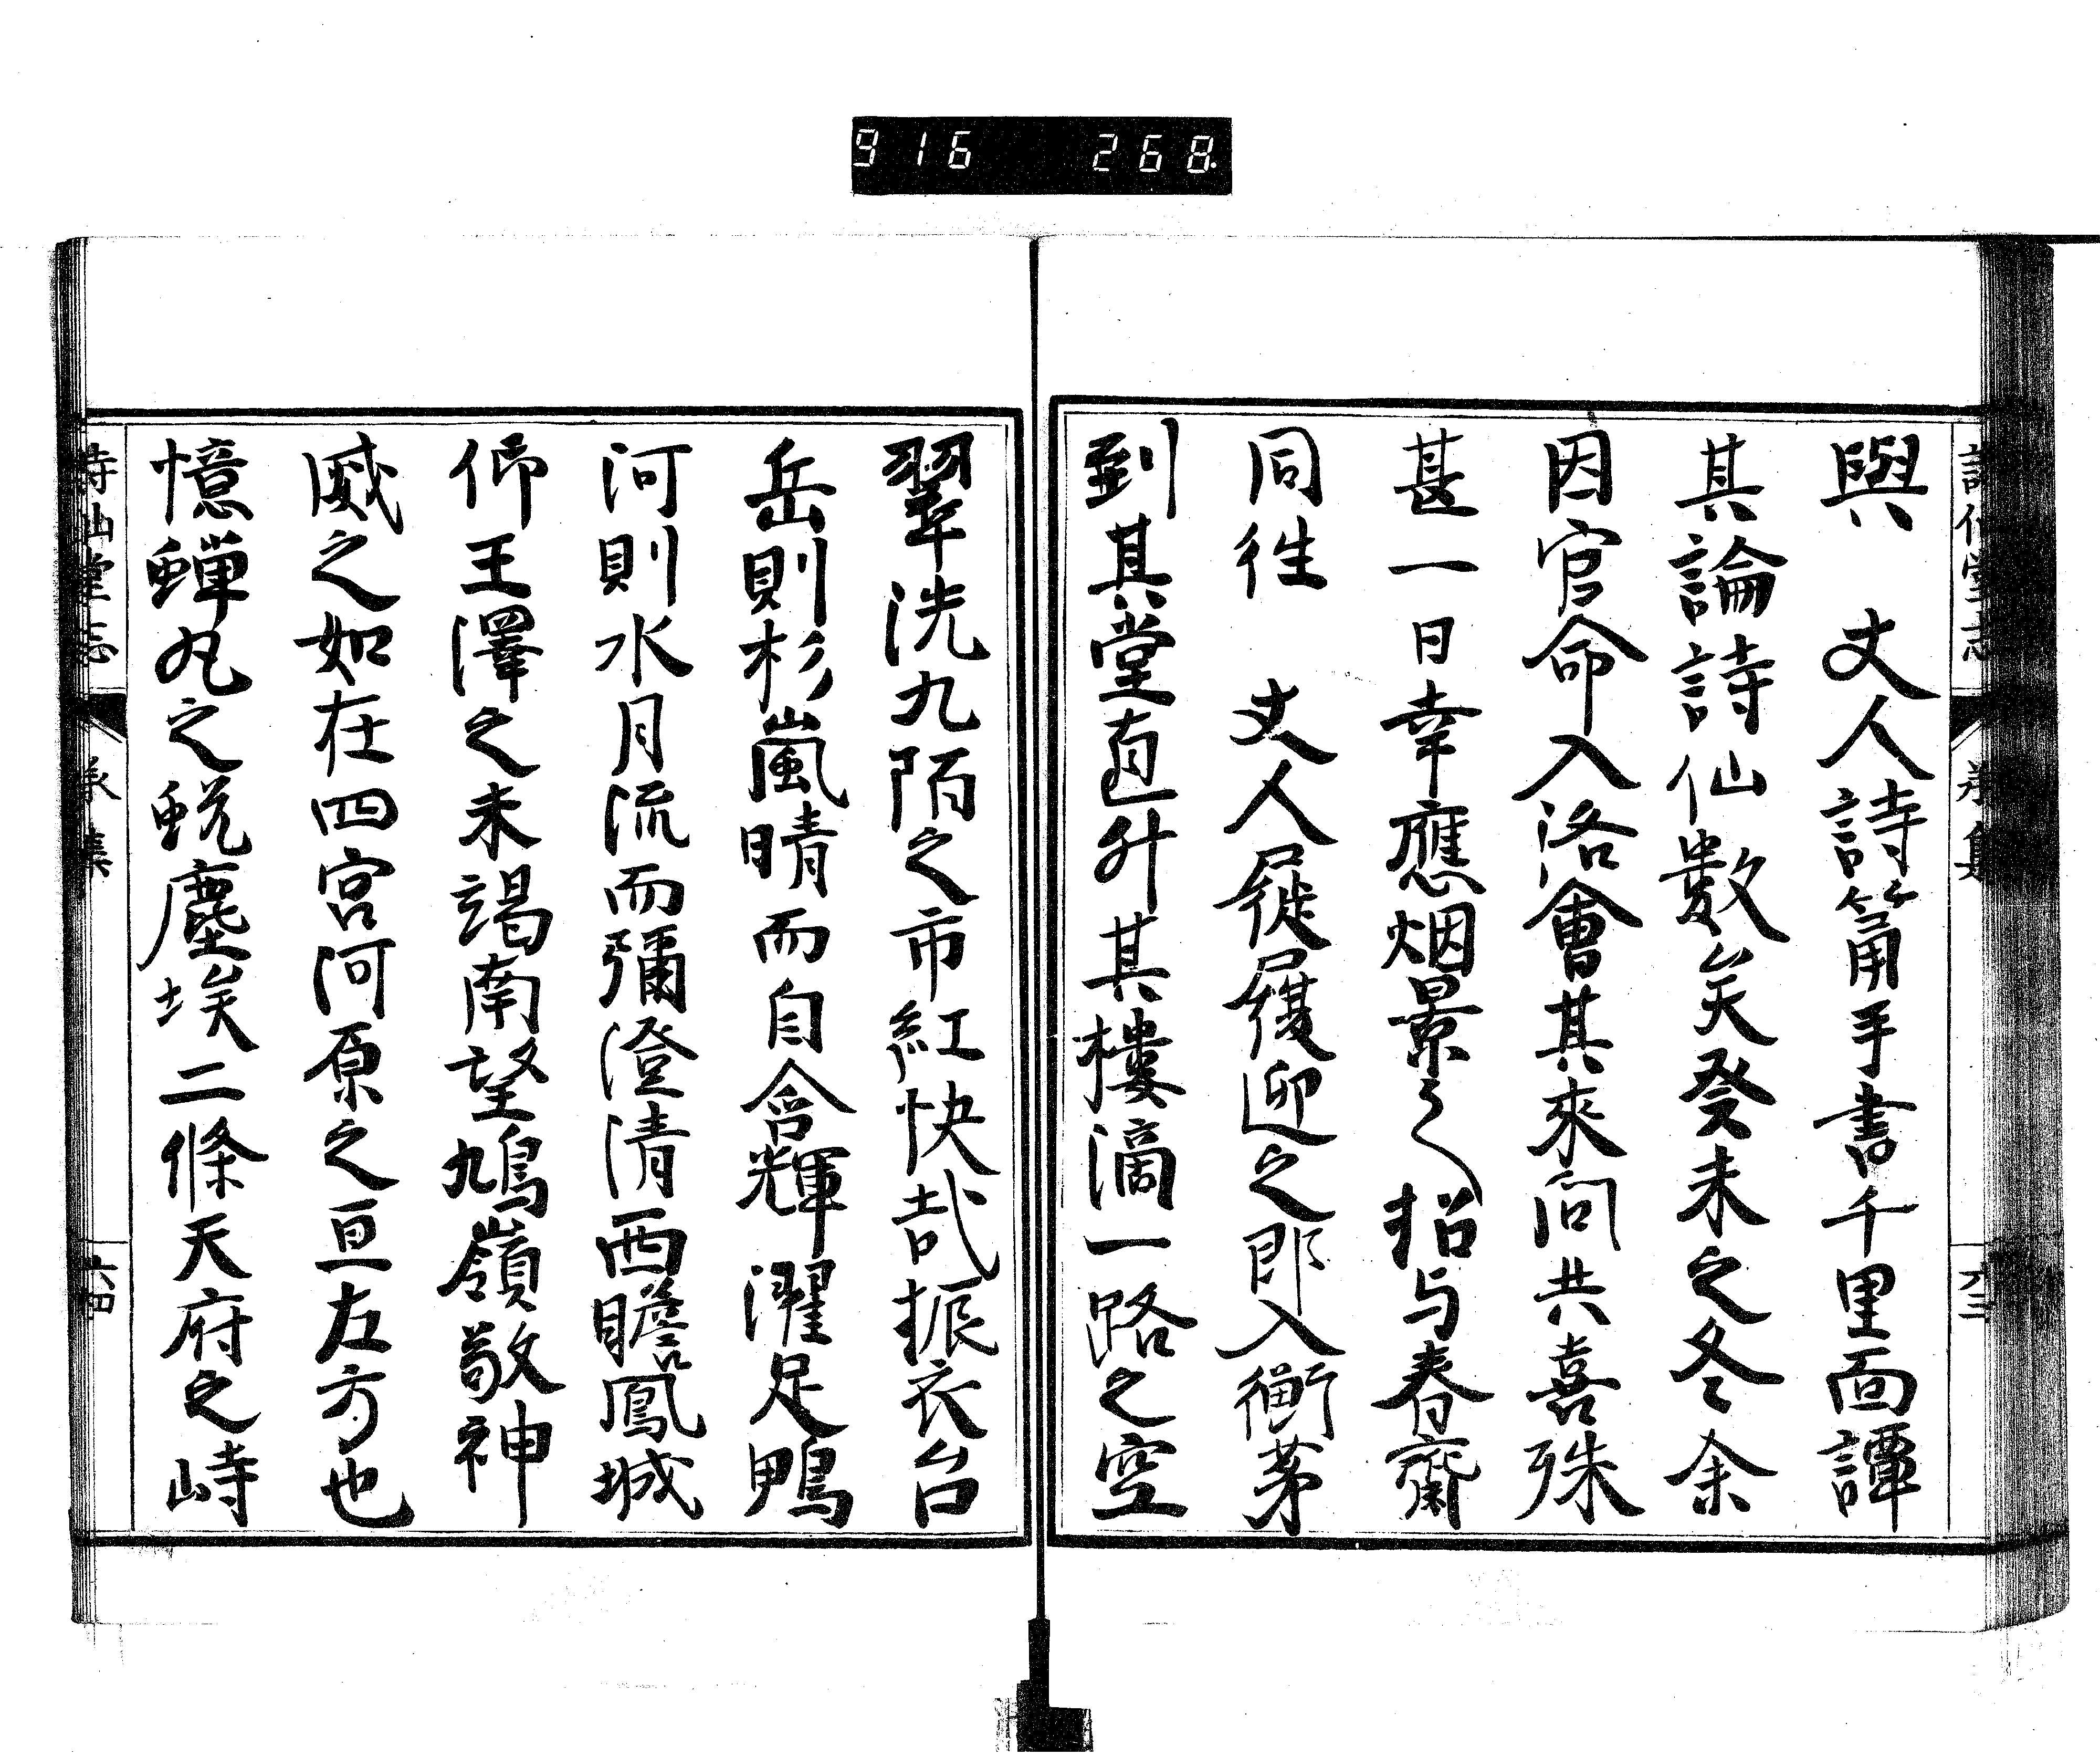 916 268
與 丈人詩筩手書千里面譚
其論詩仙數矣癸未之冬余
因官命入洛會其來問共喜殊
甚一日幸應烟景之招与春齋
同往 丈人屣履迎之即入衡茅
到其堂直升其樓滴一路之空
翠洗九陌之市紅快哉振衣台
岳則杉嵐晴而自含輝濯足鴨
河則水月流而彌澄清西瞻鳳城
仰王澤之未竭南望鳩嶺敬神
威之如在四宮河原之亘左方也
憶蟬丸之蛻塵埃二條天府之峙
詩仙堂志
承集
六四